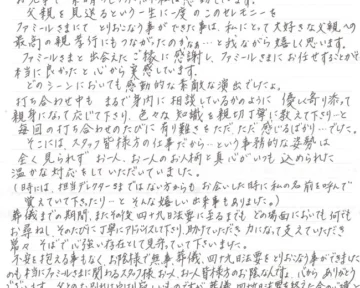 父親を見送るという一生に一度のこのセレモニーを
ファミールさまにて とりおこなう事ができた事は、私にとって大好きな父親への
最高の親孝行にもつながったのかなぁ…と我ながら嬉しく思います。
ファミールさまと出会えたご縁に感謝し、ファミールさまにお任せすることができて
本当に良かったと心から実感しています。
どのシーンにおいても感動的な素敵な演出でしたよ。
打ち合わせ中も まるで身内に相談しているかのように 優しく寄り添って
親身になって応じて下さり、色々な知識を親切丁寧に教えて下さり…と
毎回の打ち合わせのたびに有り難さをただただ感じるばかり…でした。
そこには、スタッフ皆様方の仕事だから…という事務的な姿勢は
全く見られず お一人、お一人のお人柄と真心がいつも込められた
温かな対応をしていただいていました。
(時には、担当ディレクターさまではない方からも お会いした時に私の名前を呼んで
覚えていて下さったり…と そんな嬉しい出来事もありました。)
葬儀までの期間、またその後四十九日法要に至るまでも どの場面においても 何でも
お尋ねし、そのたびに丁寧にアドバイスして下さり、助けていただき 力になって支えていただき
常々 そばで心強い存在として見守っていて下さいました。
不安を抱える事もなく、お陰様で無事、葬儀、四十九日法要をとりおこなう事ができました
のも 本当にファミールさまに関わるスタッフ様 お一人、お一人皆様方のお陰なんですよ。心から ありがとう